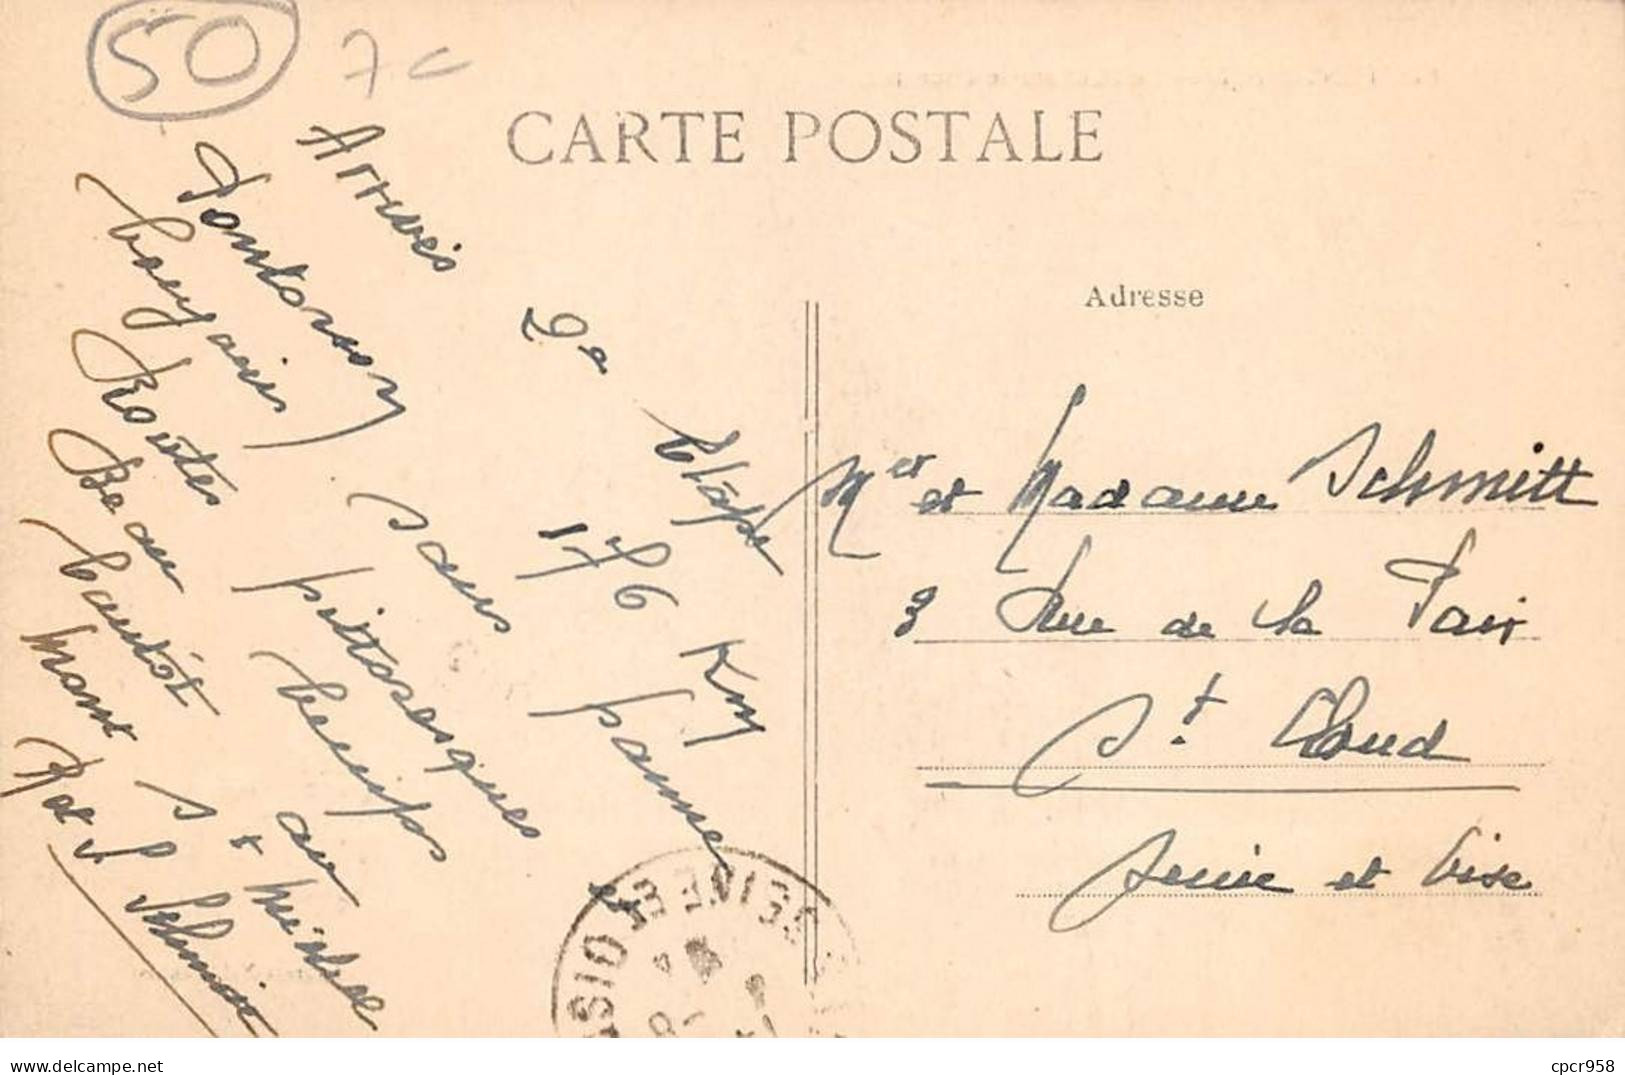 50
CARTE POSTALE
Adresse
Arrivés 2e Etape
Pontorson 176 Km
sans pannes et
toujours
Routes pittoresques
Beau temps
bientôt au
Mont St Michel
R et S Schmitt
Mer et Madame Schmitt
3 Rue de la Paix
St Cloud
Seine et Oise
SEINE ET OISE
cpcr958